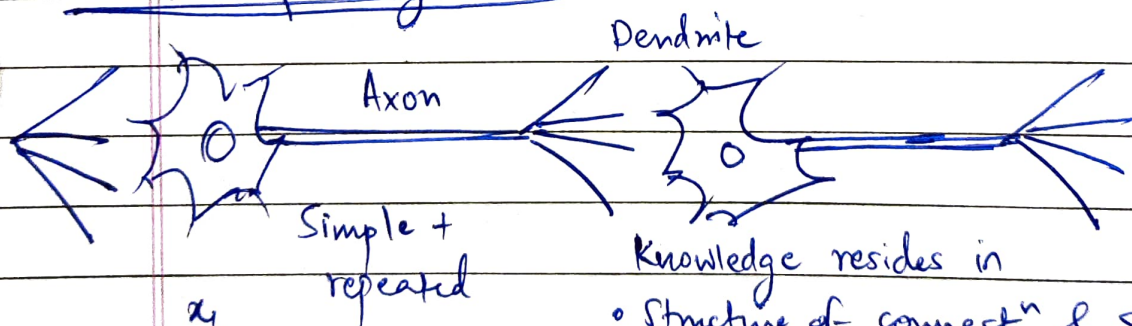 Dendrite
Axon
Simple +
repeated
Knowledge resides in
x₁
• Structure of connectⁿ &